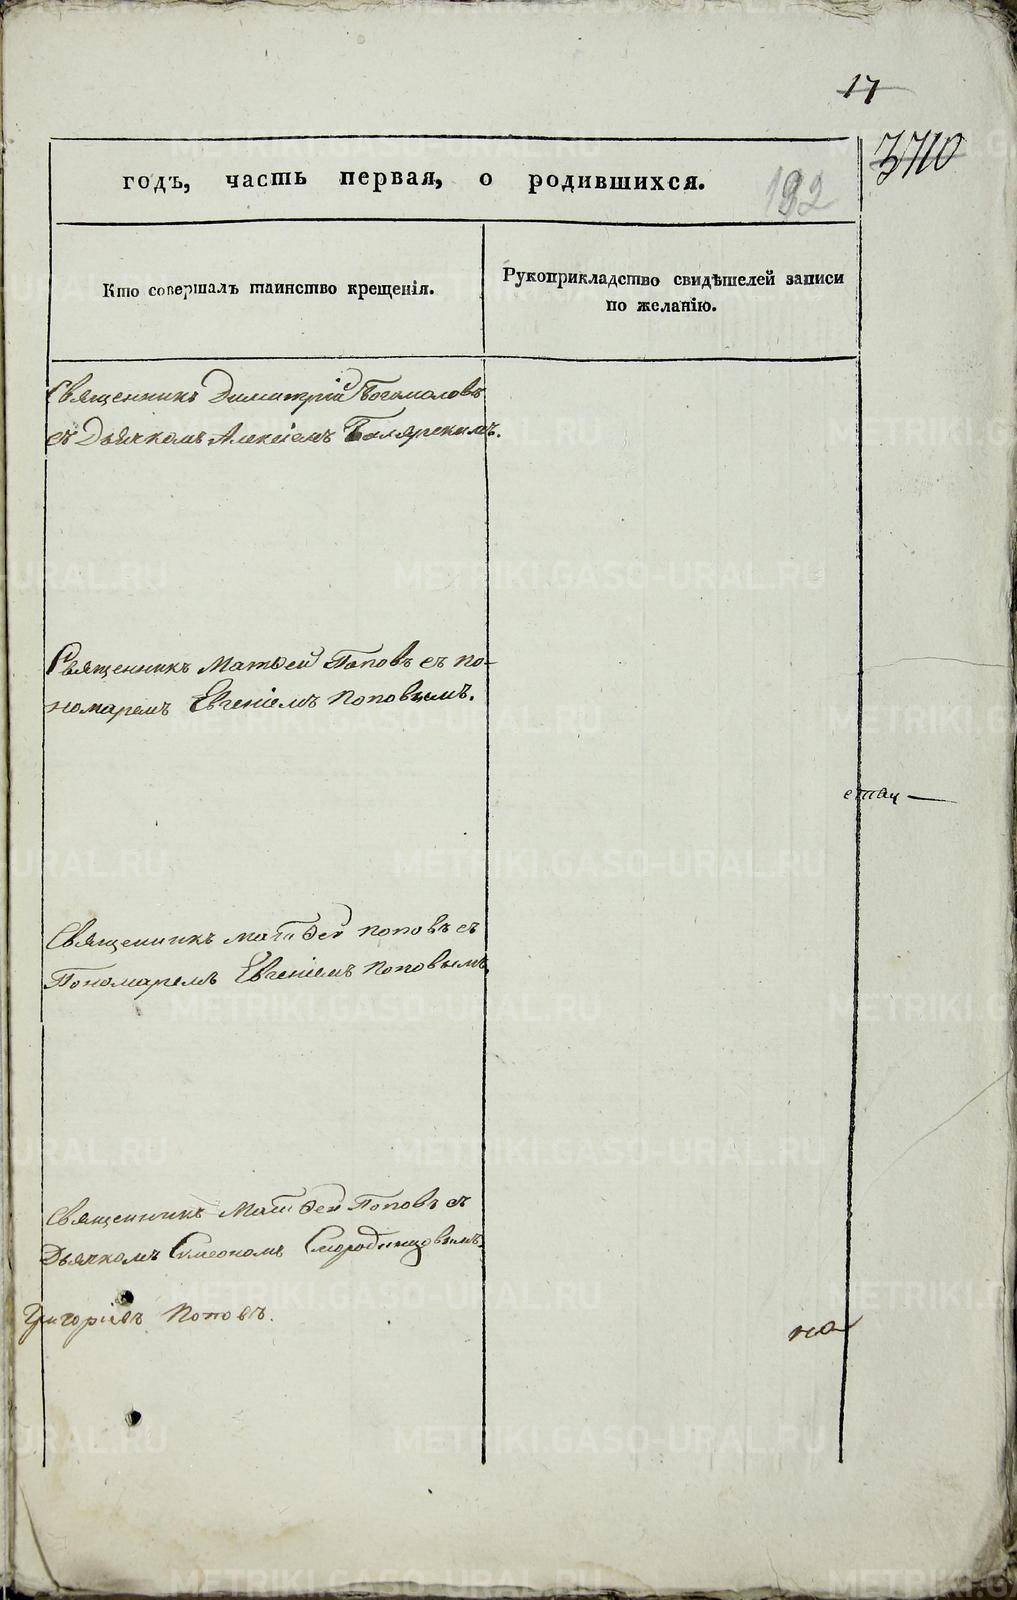 17
3710
годъ, часть первая, о родившихся.
192
Кто совершалъ таинство крещенія.
Рукоприкладство свидѣтелей записи
по желанію.
Священникъ Димитрій Богомоловъ
съ Дьячкомъ Алексіемъ Билярскимъ.
Священникъ Матѳей Поповъ съ по-
номаремъ Евгеніемъ Поповымъ.
Священникъ Матѳей Поповъ съ
Пономаремъ Евгеніемъ Поповымъ
Священникъ Матѳей Поповъ съ
Дьячкомъ Симеономъ Смородинцовымъ.
Григоріевъ Поповъ.
на
METRIKI.GASO-URAL.RU